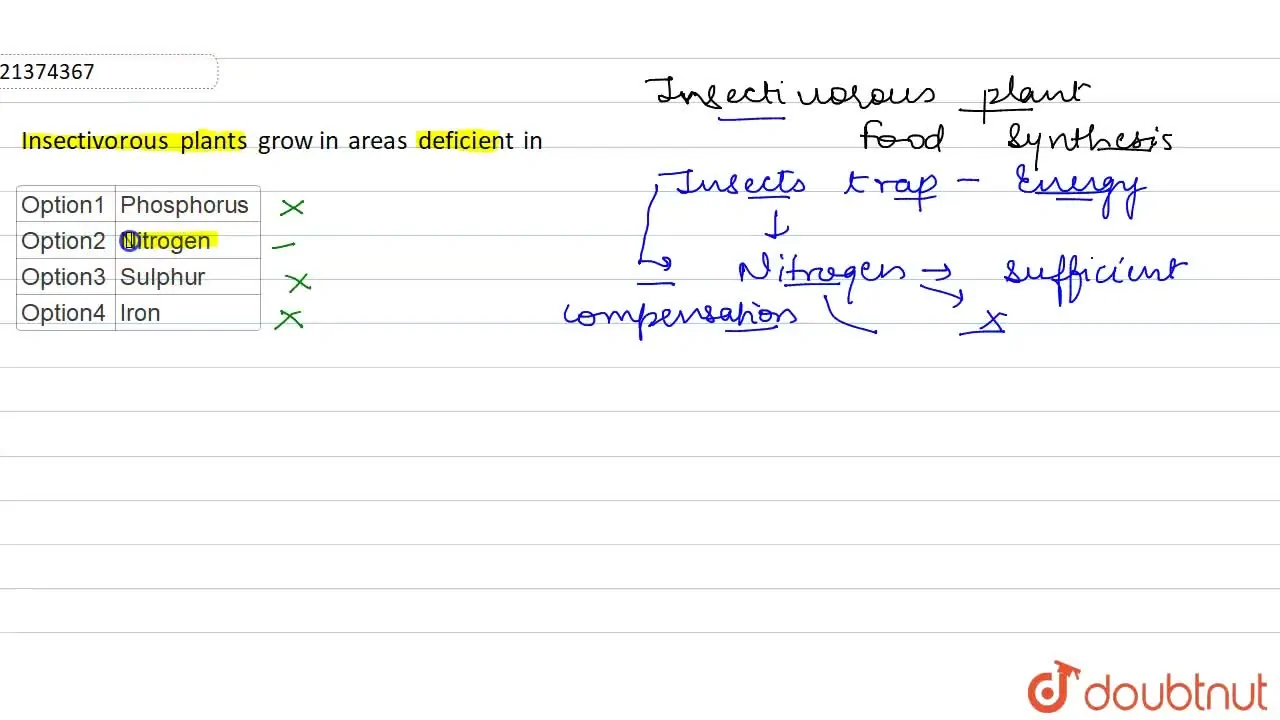 21374367
Insectivorous plants grow in areas deficient in
Option1 Phosphorus ×
Option2 Nitrogen –
Option3 Sulphur ×
Option4 Iron ×
Insectivorous plant
food synthesis
Insects trap – Energy
↓
Nitrogen → sufficient
compensation ×
doubtnut